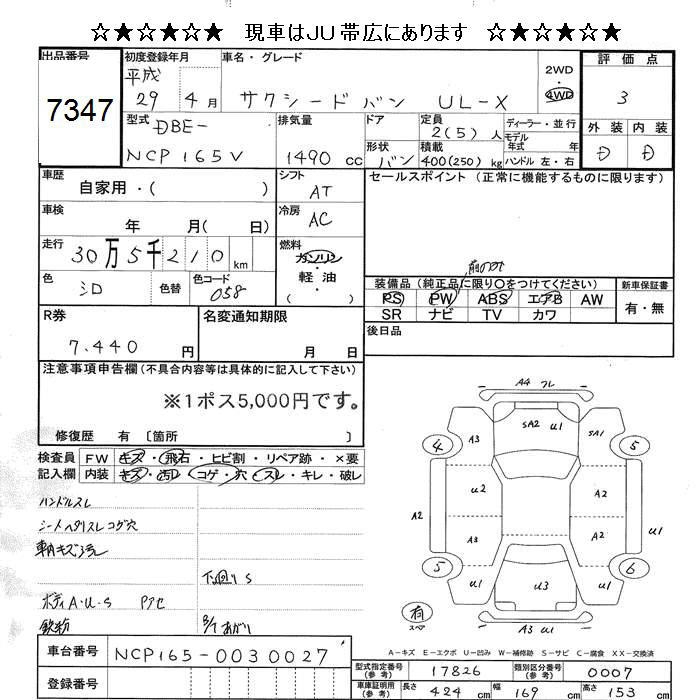 ☆★☆★☆★ 現車はJU帯広にあります ☆★☆★☆★
出品番号
7347
初度登録年月
平成
29 4月
車名・グレード
サクシードバン UL-X
2WD
・
4WD
評価点
3
外装 内装
D D
型式
DBE-
NCP165V
排気量
1490 cc
ドア
形状
バン
定員
2(5)人
積載
400(250)kg
ディーラー・並行
モデル
年式 年
ハンドル 左・右
車歴
自家用・( )
シフト
AT
セールスポイント (正常に機能するものに限ります)
車検
年 月( 日)
冷房
AC
走行
30万5千210km
燃料
ガソリン
・
軽油
・
( )
色
シロ
色替
色コード
058
前のみ
装備品(純正品に限り○をつけてください)
PS PW ABS エアB AW
SR ナビ TV カワ
新車保証書
有・無
R券
7.440 円
名変通知期限
月 日
後日品
注意事項申告欄(不具合内容等は具体的に記入して下さい)
※1ポス5,000円です。
修復歴 有 〔箇所 〕
検査員
記入欄
FW キズ・飛石・ヒビ割・リペア跡・×要
内装 キズ・汚レ・コゲ・穴・スレ・キレ・破レ
ハンドルスレ
シートヘタリスレコゲ穴
車内キズ汚
下廻りS
ボディA・U・S Pクセ
鉄粉
A4 フレ
SA2 U1
A3
SA1
4
5
U2
A2
A2
A3
A2
U1
5
6
U1
U3
U1
有
スペア
A3 U1
A-キズ E-エクボ U-凹み W-補修跡 S-サビ C-腐食 XX-交換済
車台番号
NCP165-0030027
登録番号
型式指定番号
(参考)
17826
類別区分番号
(参考)
0007
車庫証明用
(参考)
長さ 424 cm
幅 169 cm
高さ 153 cm